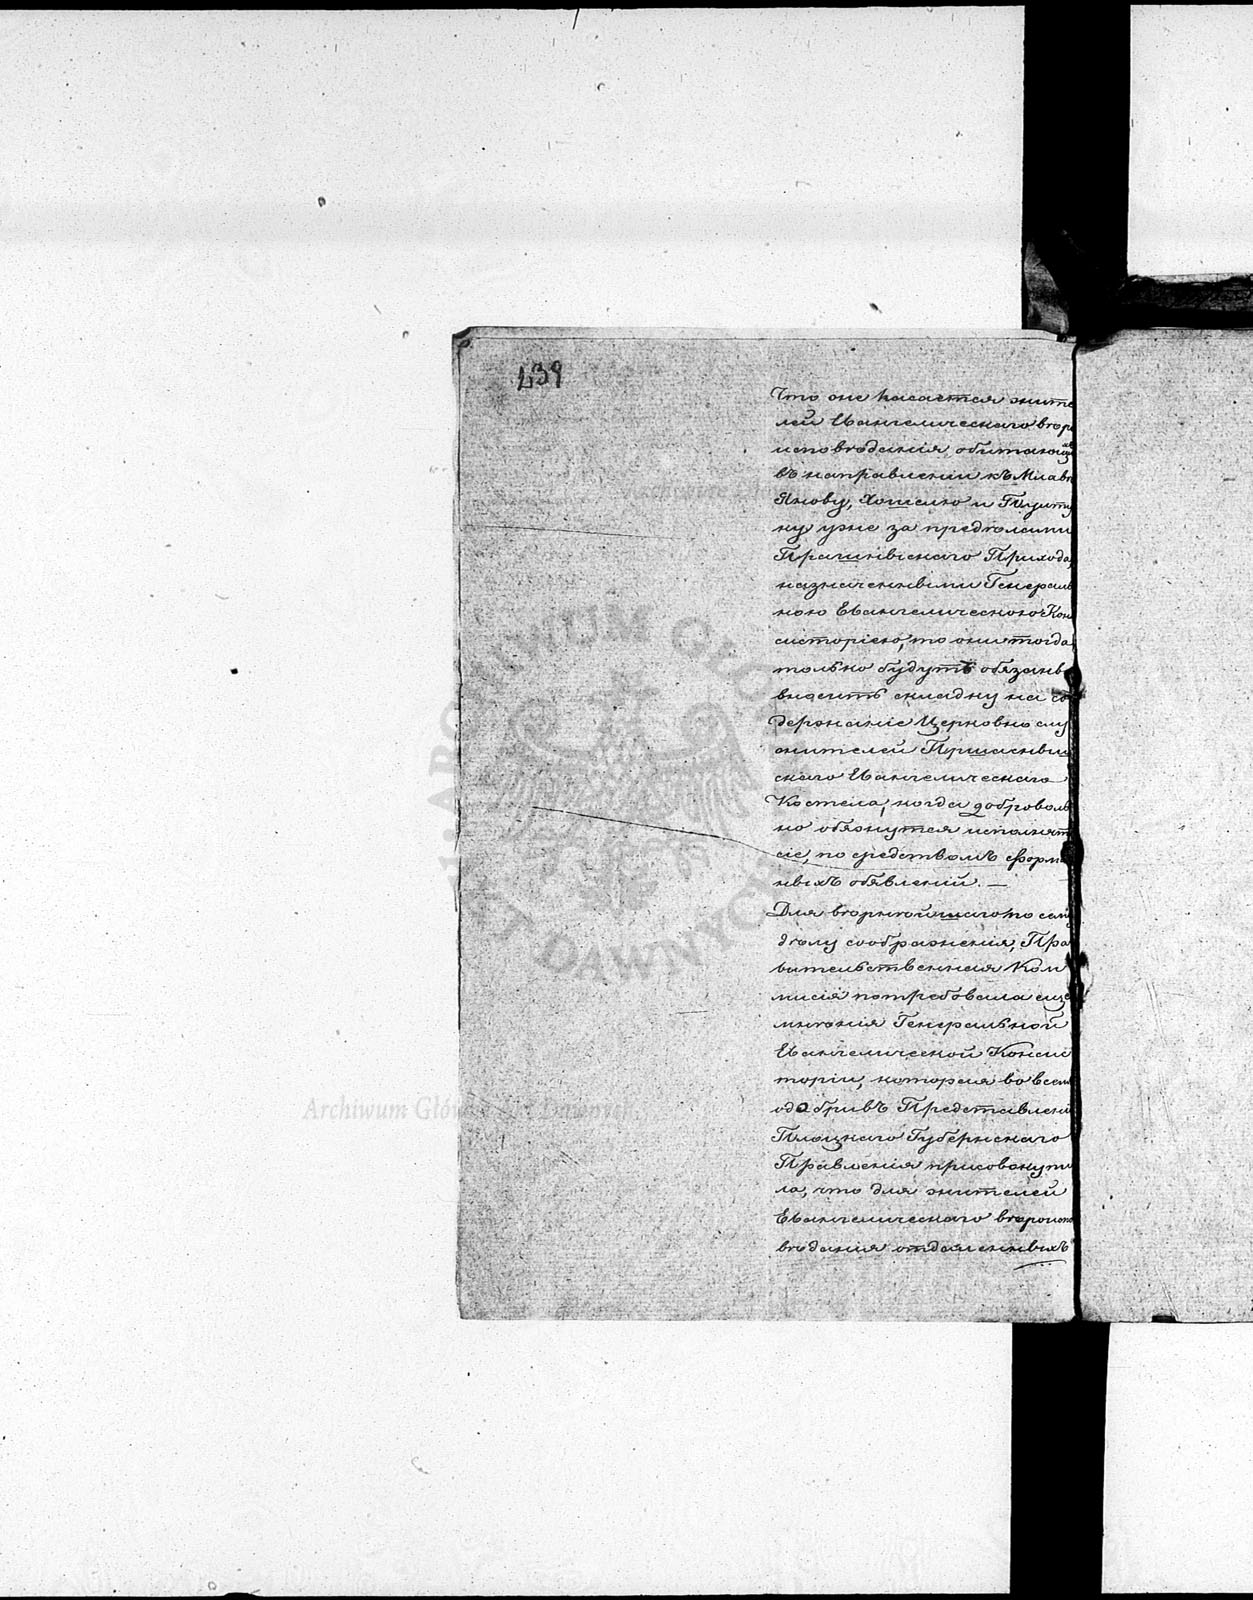 439
Что оне касается жите
лей Евангелическаго вѣро
исповѣданія обитающихъ
въ направленіи къ Млавѣ
Янову, Хожелю и Пулту
ску уже за предѣлами
Прашнышскаго Прихода,
назначенными Генераль
ною Евангелическою Кон
систоріею, то они тогда
только будутъ обязаны
вносить складку на со
держаніе Церковно слу
жителей Прашныш
скаго Евангелическаго
Костела, когда доброволь
но обяжутся исполнять
сіе, по средствомъ форм
ныхъ обявленій. —
Для вѣрнѣйшаго по сему
дѣлу соображенія, Пра
вительственная Ком
мисія потребовала еще
мнѣнія Генеральной
Евангелической Конси
сторіи, которая во всемъ
одобривъ Представленіе
Плоцкаго Губернскаго
Правленія присовокупи
ла, что для жителей
Евангелическаго вѣроиспо
вѣданія отдаленныхъ
ARCHIWUM GŁÓ
DAWNYCH
Archiwum Główne Akt Dawnych